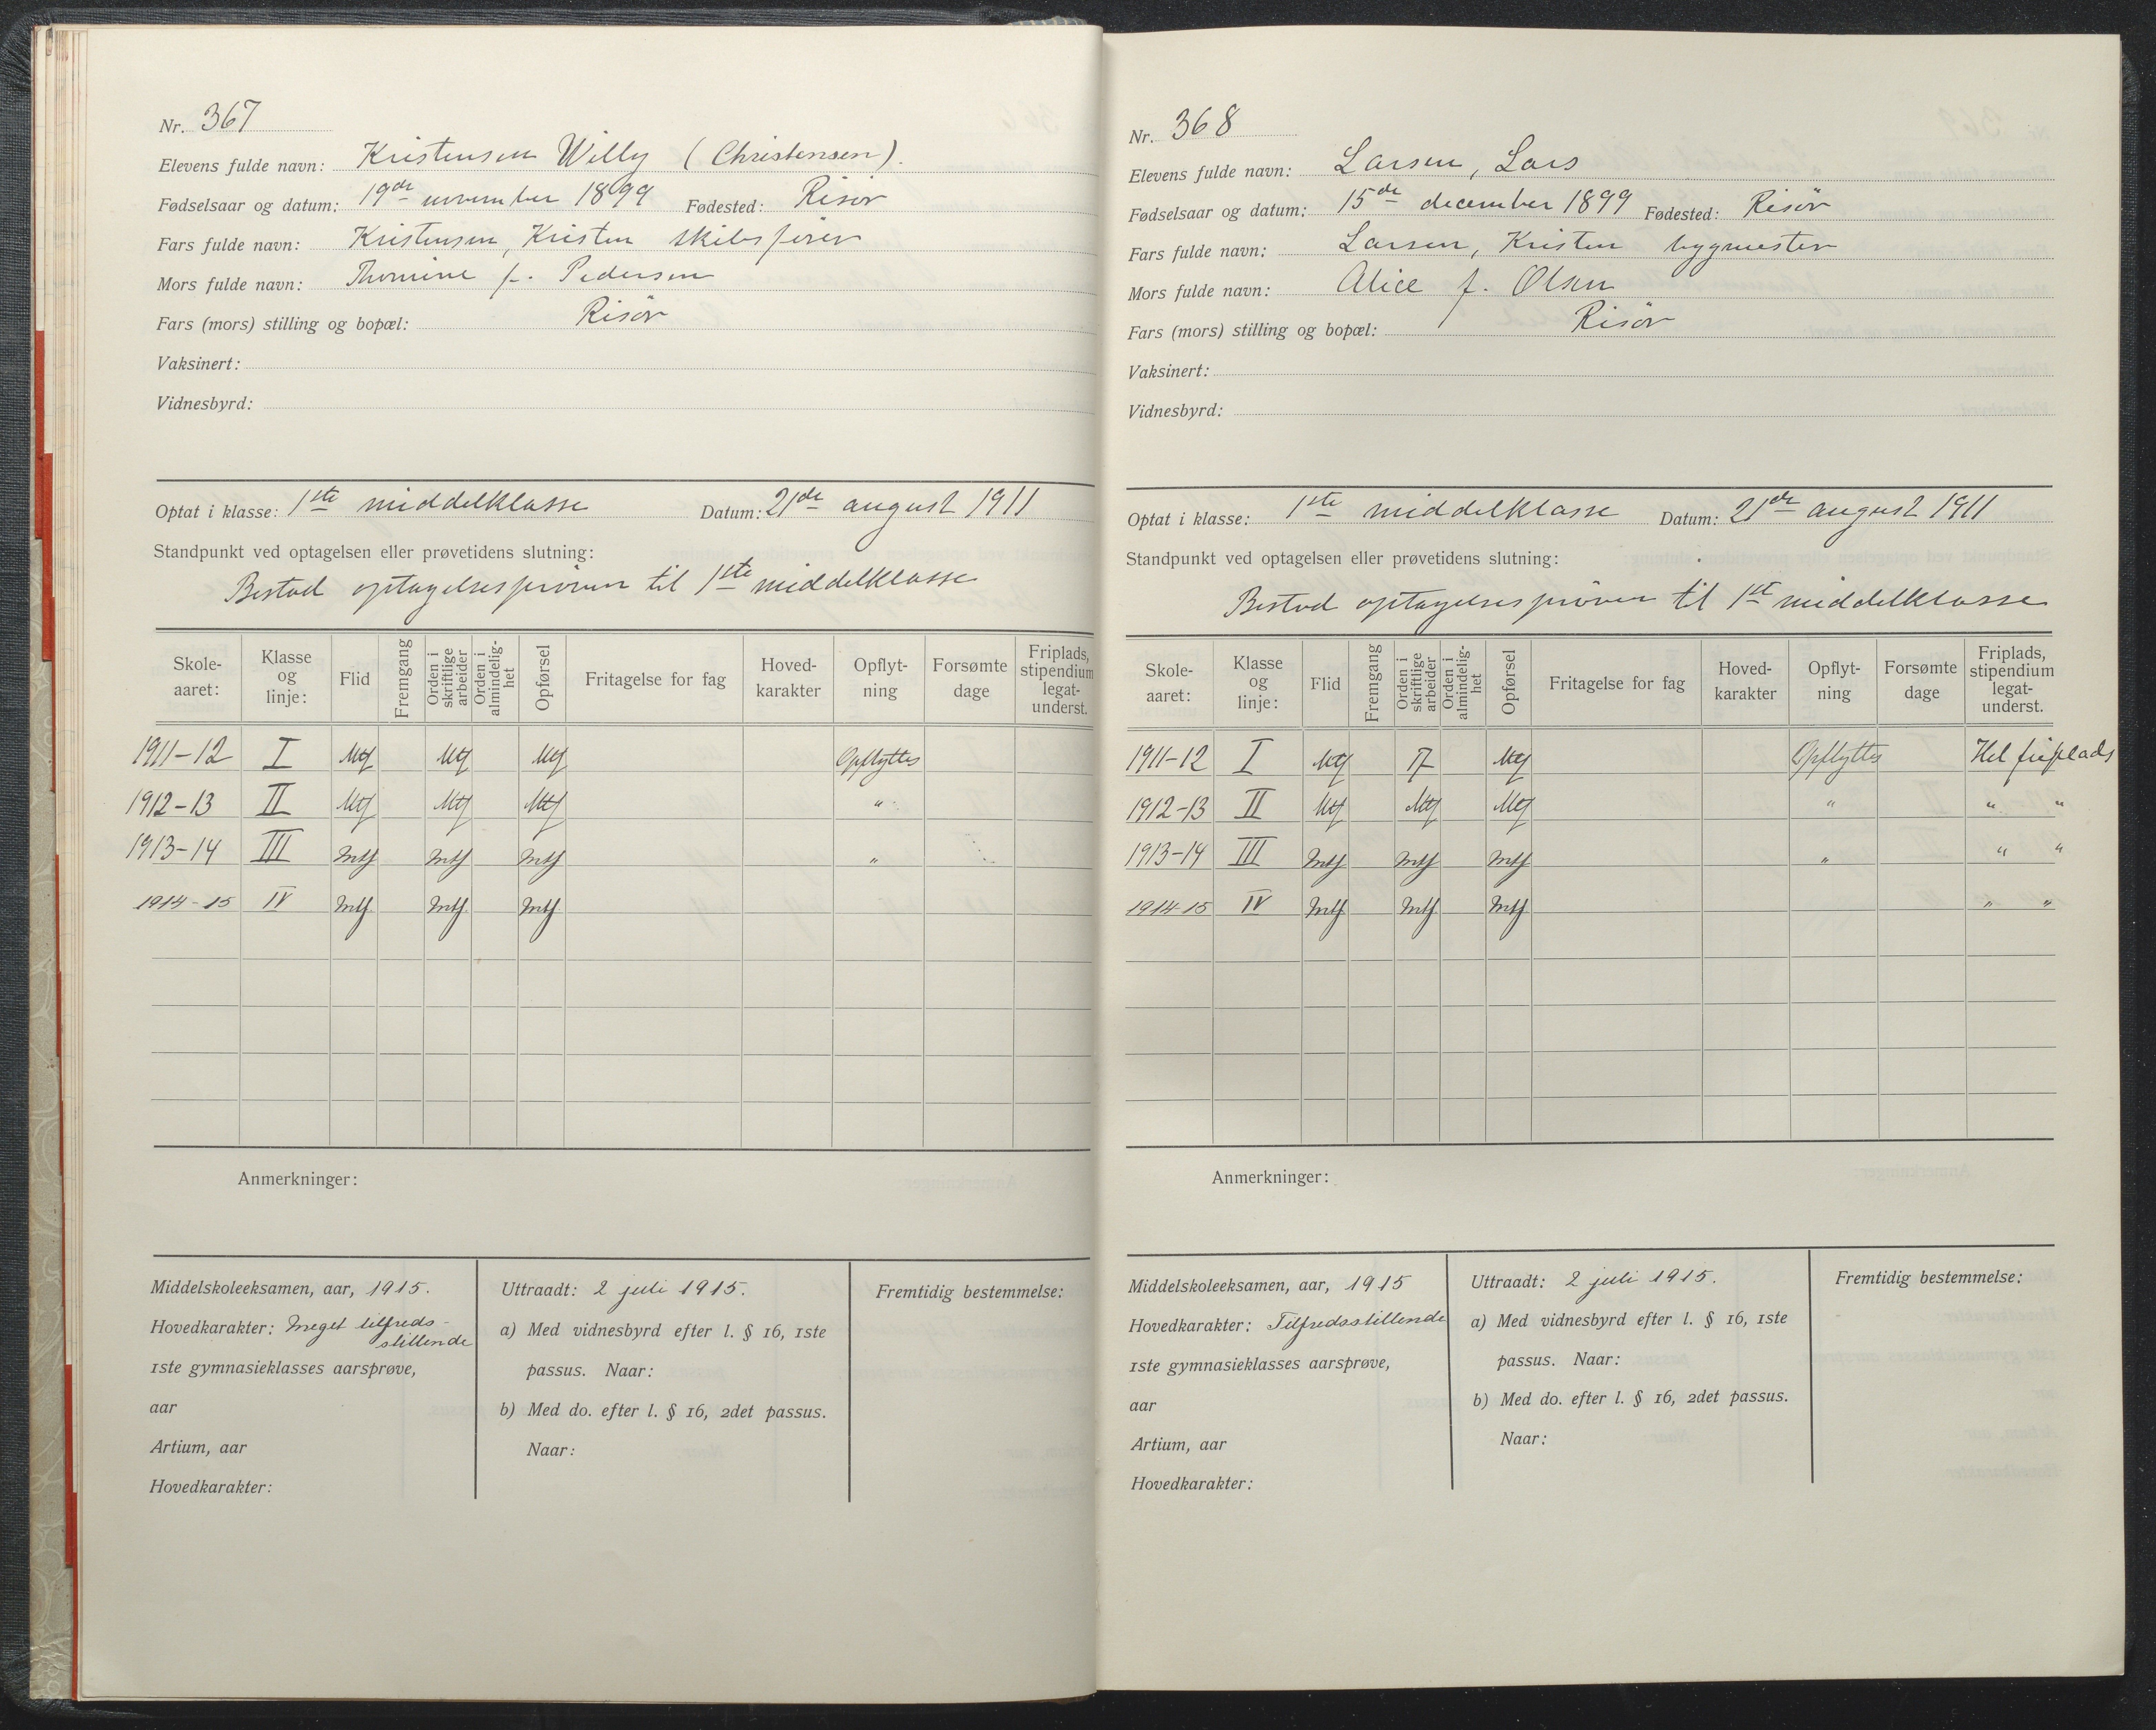 Nr. 367
Elevens fulde navn: Kristensen Willy (Christensen).
Fødselsaar og datum: 19de november 1899 Fødested: Risör
Fars fulde navn: Kristensen, Kristen skibsfører
Mors fulde navn: Thomine f. Pedersen
Fars (mors) stilling og bopæl: Risör
Vaksinert:
Vidnesbyrd:
Optat i klasse: 1ste middelklasse Datum: 21de august 1911
Standpunkt ved optagelsen eller prøvetidens slutning:
Bestod optagelsespröven til 1ste middelklasse
Skole-aaret: Klasse og linje: Flid Fremgang Orden i skriftlige arbeider Orden i almindelig-het Opførsel Fritagelse for fag Hoved-karakter Opflyt-ning Forsømte dage Friplads, stipendium legat-underst.
1911-12 I Mtf Mtf Mtf Opflyttes
1912-13 II Mtf Mtf Mtf "
1913-14 III Mtf Mtf Mtf "
1914-15 IV Mtf Mtf Mtf
Anmerkninger:
Middelskoleeksamen, aar, 1915.
Hovedkarakter: Meget tilfreds-
stillende
1ste gymnasieklasses aarsprøve,
aar
Artium, aar
Hovedkarakter:
Uttraadt: 2 juli 1915.
a) Med vidnesbyrd efter l. § 16, 1ste
passus. Naar:
b) Med do. efter l. § 16, 2det passus.
Naar:
Fremtidig bestemmelse:
Nr. 368
Elevens fulde navn: Larsen, Lars
Fødselsaar og datum: 15de december 1899 Fødested: Risör
Fars fulde navn: Larsen, Kristen bygmester
Mors fulde navn: Alice f. Olsen
Fars (mors) stilling og bopæl: Risör
Vaksinert:
Vidnesbyrd:
Optat i klasse: 1ste middelklasse Datum: 21de august 1911
Standpunkt ved optagelsen eller prøvetidens slutning:
Bestod optagelsespröven til 1ste middelklasse
Skole-aaret: Klasse og linje: Flid Fremgang Orden i skriftlige arbeider Orden i almindelig-het Opførsel Fritagelse for fag Hoved-karakter Opflyt-ning Forsømte dage Friplads, stipendium legat-underst.
1911-12 I Mtf Tf Mtf Opflyttes Hel friplads
1912-13 II Mtf Mtf Mtf " " "
1913-14 III Mtf Mtf Mtf " " "
1914-15 IV Mtf Mtf Mtf " "
Anmerkninger:
Middelskoleeksamen, aar, 1915
Hovedkarakter: Tilfredsstillende
1ste gymnasieklasses aarsprøve,
aar
Artium, aar
Hovedkarakter:
Uttraadt: 2 juli 1915.
a) Med vidnesbyrd efter l. § 16, 1ste
passus. Naar:
b) Med do. efter l. § 16, 2det passus.
Naar:
Fremtidig bestemmelse: